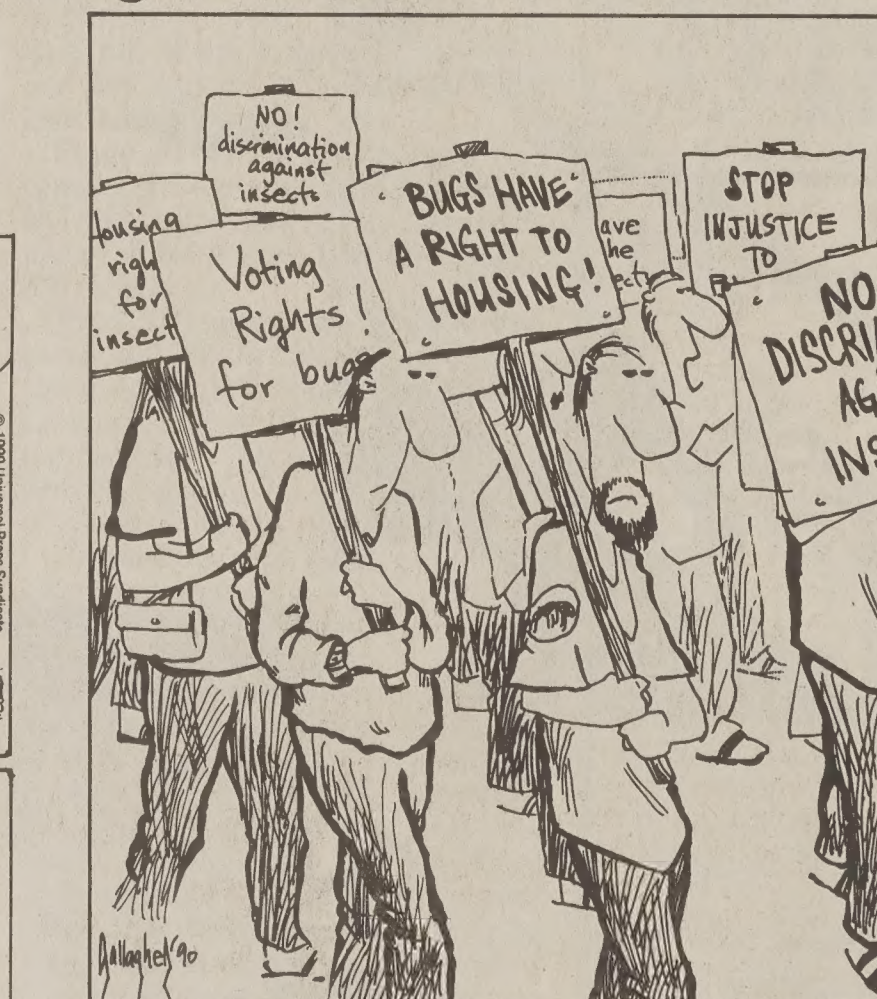 NO!
discrimination
against
insects
Housing
righ
for
insect
Voting
Rights!
for bugs
BUGS HAVE
A RIGHT TO
HOUSING!
ave
he
ects
STOP
INJUSTICE
TO
NO
DISCRI
AG
INS
Gallagher '90
Universal Press Syndicate